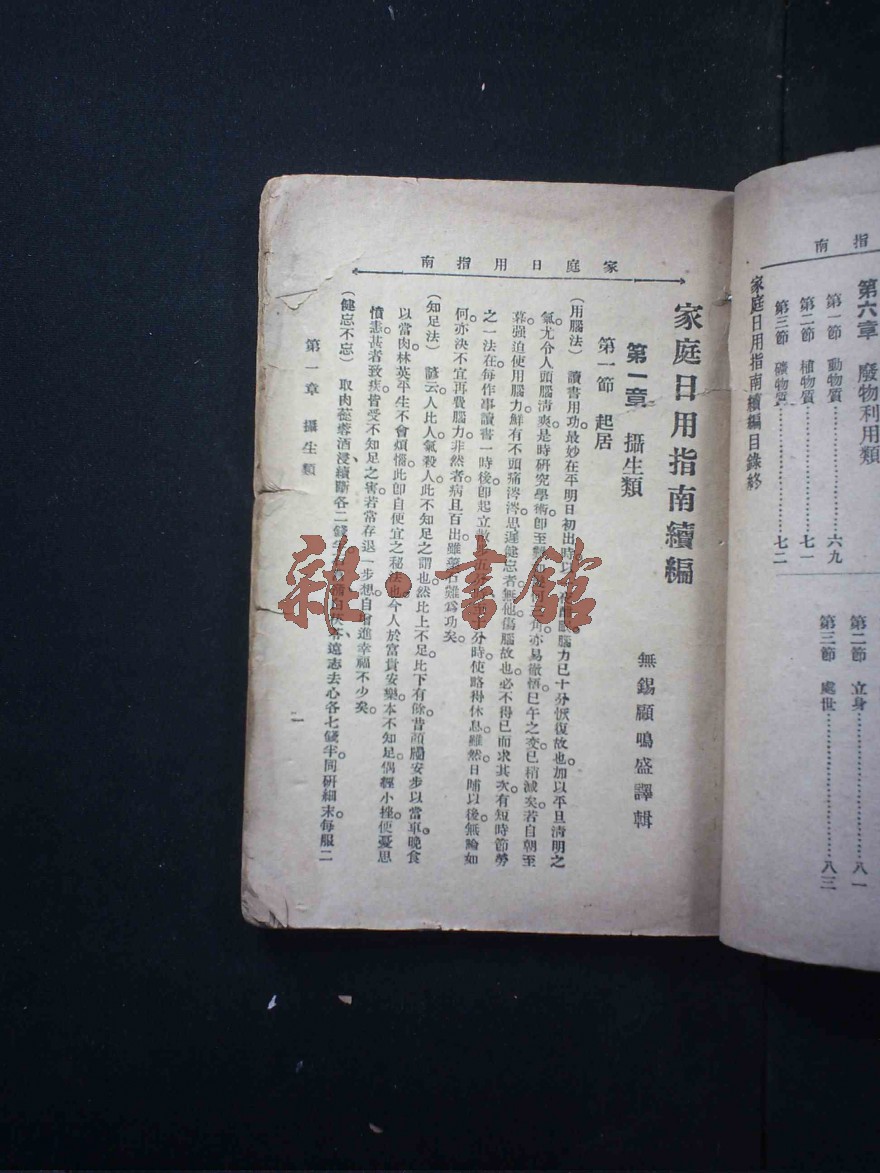 南指
第六章 廢物利用類
第一節 動物質⋯⋯⋯⋯六九
第二節 植物質⋯⋯⋯⋯七一
第三節 礦物質⋯⋯⋯⋯七二
第二節 立身⋯⋯⋯⋯八一
第三節 處世⋯⋯⋯⋯八三
家庭日用指南續編目錄終
南指用日庭家
家庭日用指南續編
無錫顧鳴盛譯輯
第一章 攝生類
第一節 起居
(用腦法) 讀書用功。最妙在平明日初出時。以腦力已十分恢復故也。加以平旦清明之
氣。尤令人頭腦清爽。是時研究學術。卽至亦易徹悟。巳午之交。已稍減矣。若自朝至
暮。强迫使用腦力。鮮有不頭痛涔涔。思遲健忘者。無他。傷腦故也。必不得已而求其次。有短時節勞
之一法。在每作事讀書一時後。卽起立散十分時。使略得休息。雖然。日晡以後。無論如
何。亦決不宜再費腦力。非然者。病且百出。雖藥石難爲功矣。
(知足法) 諺云。人比人。氣殺人。此不知足之謂也。然比上不足。比下有餘。昔顏斶安步以當車。晚食
以當肉。林英平生不會煩惱。此卽自便宜之秘法也。今人於富貴安樂。本不知足。偶經小挫。便憂思
憤恚。甚者致疾。皆受不知足之害。若常存退一步想。自增進幸福不少矣。
(健忘不忘) 取肉蓯蓉酒浸、續斷各二錢白茯苓、遠志去心各七錢半。同研細末。每服二
第一章 攝生類
一
雜·書館